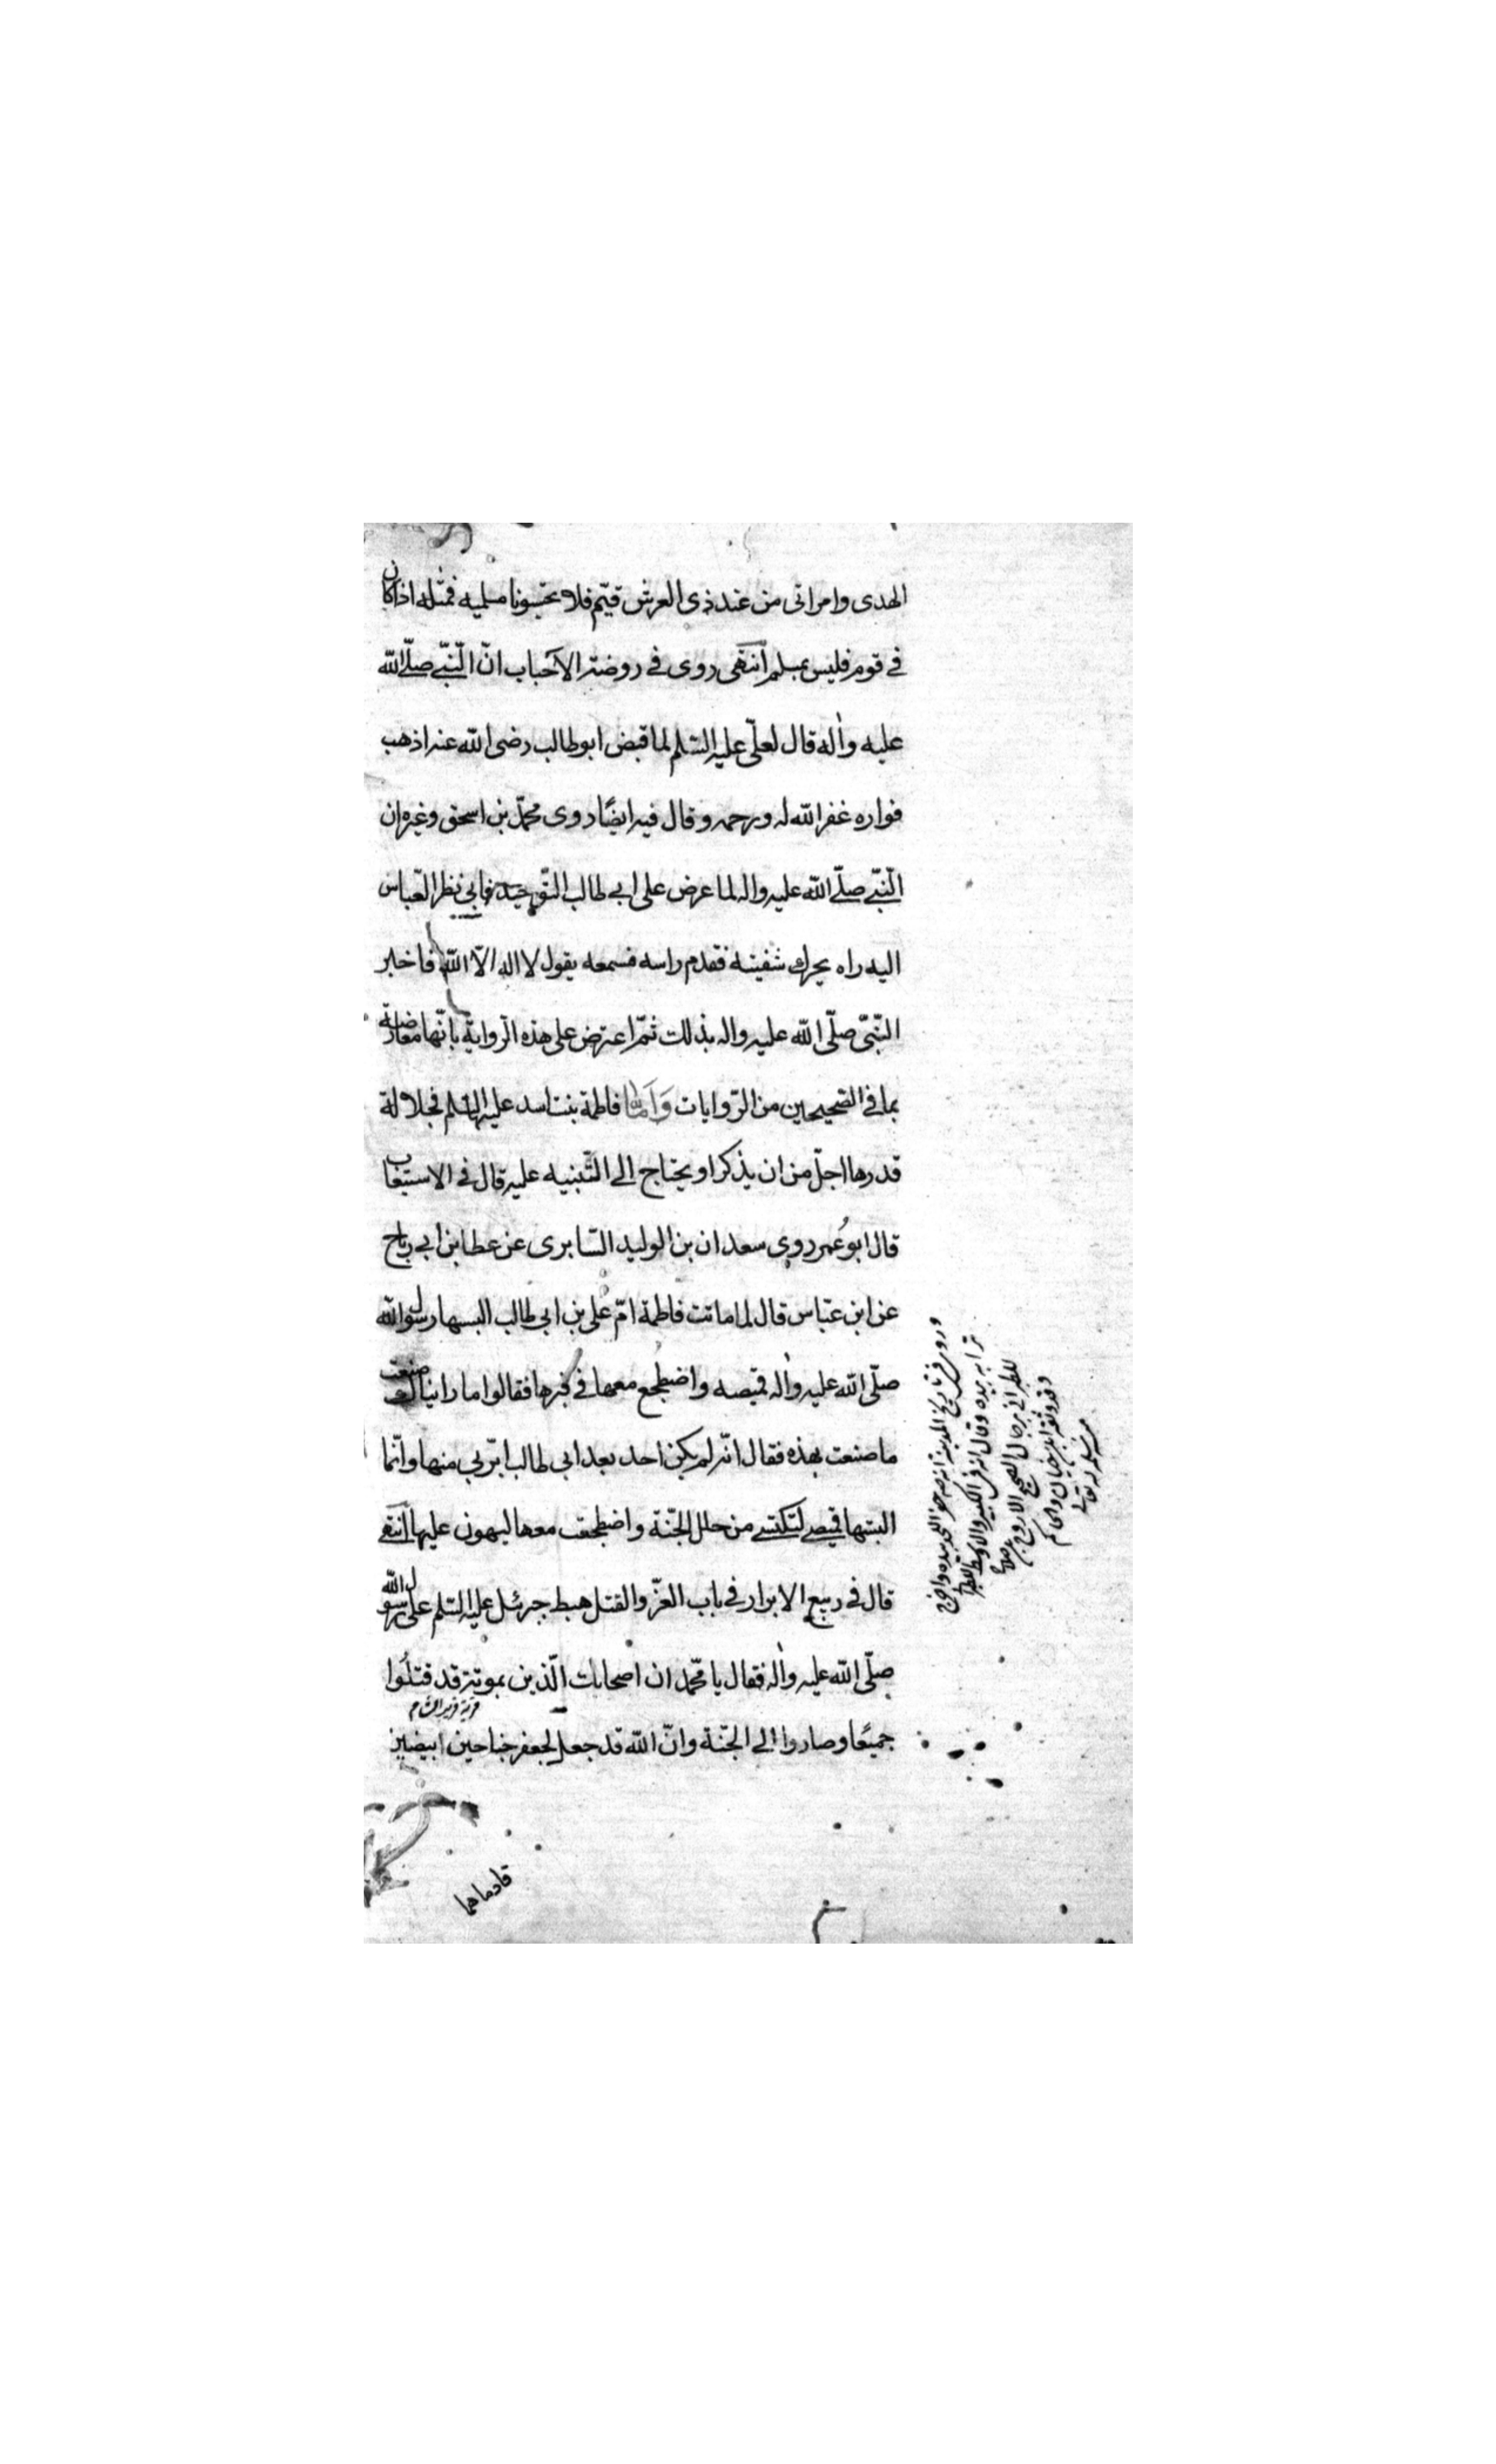 الهدى وامراتى من عند ذى العرش قيّم فلا تحسبونا مسلميه فمثله اذا كان
في قوم فليس بمسلم انتهى روى في روضة الاحباب انّ النّبيّ صلّى الله
عليه واله قال لعلّى عليه السّلم لما قبض ابوطالب رضى الله عنه اذهب
فواره غفر الله له ورحمه وقال فيه ايضًا روى محمّد بن اسحق وغيره ان
النّبيّ صلّى الله عليه واله لما عرض على ابي طالب التّوحيد فابى نظر العّباس
اليه راه يحرك شفيته فقدم راسه فسمعه يقول لا اله الاّ الله فاخبر
النّبىّ صلّى الله عليه واله بذلك ثمّ اعترض على هذه الرّواية بانّها معارضة
بما في الصّحيحين من الرّوايات وَاَمّا فاطمة بنت اسد عليها السّلم فجلالة
قدرها اجلّ من ان يذكر او يحتاج الى التّنبيه عليه قال في الاستيعاب
قال ابو عُمر روى سعدان بن الوليد السّابرى عن عطا بن ابي رباح
عن ابن عبّاس قال لما ماتت فاطمة امّ على بن ابى طالب البسها رسول الله
صلّى الله عليه واله قميصه واضطجع معها في قبرها فقالوا ما رايناك صنعت
ما صنعت بهذه فقال انّه لم يكن احد بعد ابى طالب ابرّ بي منها وانّما
البستها قميصي لتكتسي من حلل الجنّة واضطجعت معها ليهون عليها انتهى
قال في ربيع الابرار في باب العزّ والقتل هبط جبرئيل عليه السّلم على رسول الله
صلّى الله عليه واله فقال يا محمّد ان اصحابك الّذين بموته قد قتلُوا
جميعًا وصاروا الى الجنّة وانّ الله قد جعل لجعفر جناحين ابيضين
وروى في تاريخ المدينة انه صلى حفر اللحد بيده واخرج
ترابه بيده وقال انه في الكبير والاوسط
للطبرانى برجال الصحيح الا روح بن صلاح
وقد وثقه ابن حبان والحاكم